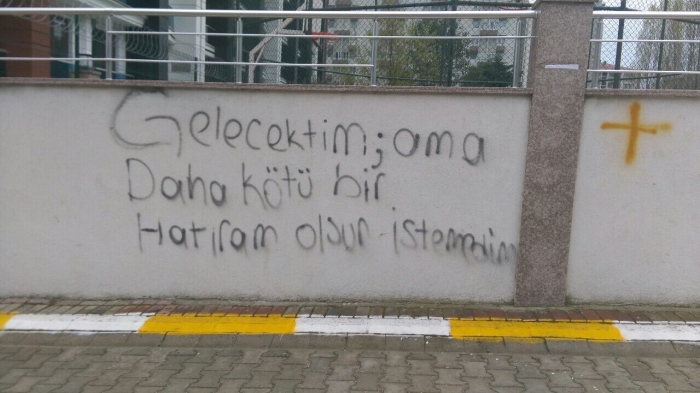 Gelecektim; ama
Daha kötü bir
Hatıram olsun istemedim